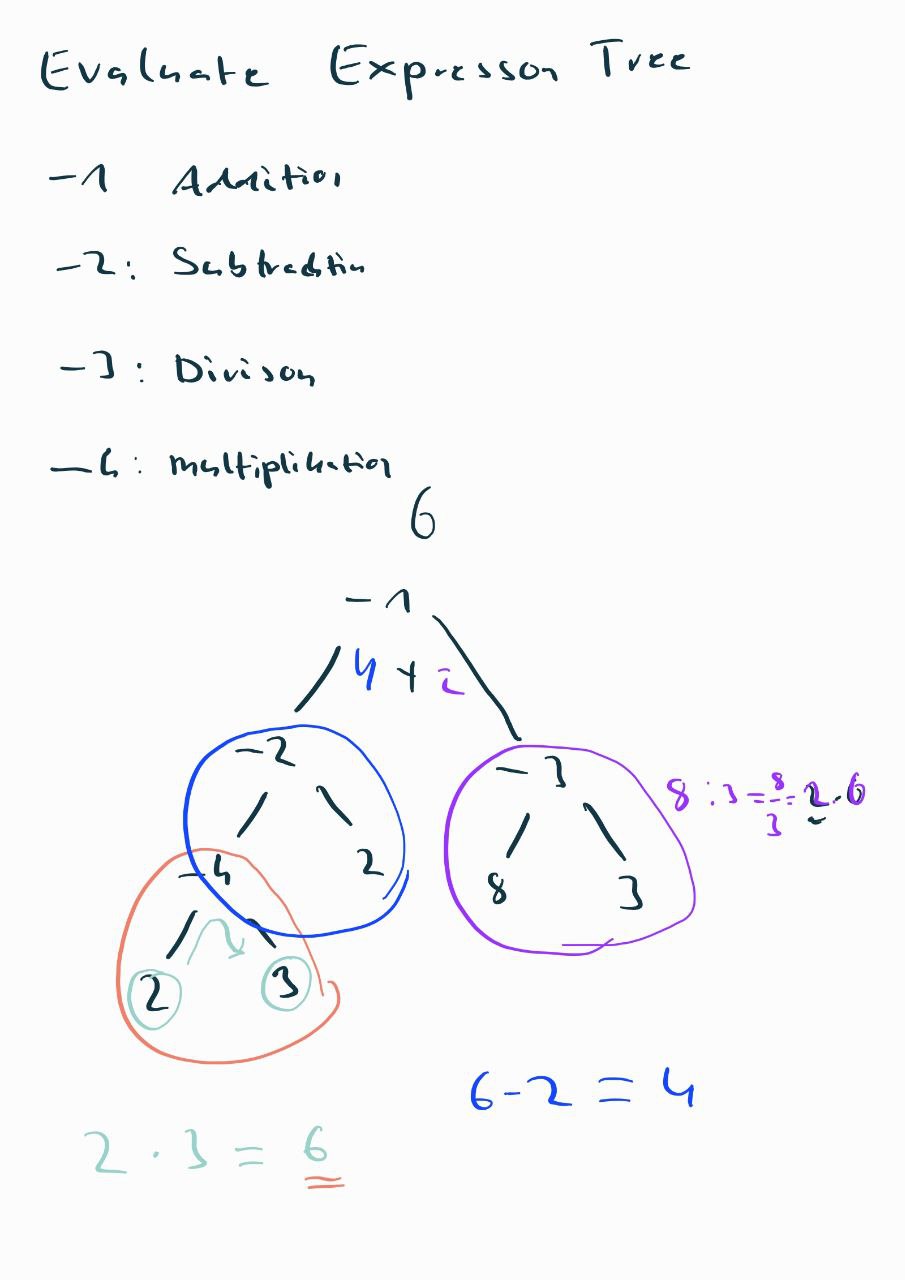 Evaluate Expresson Tree
-1 Addition
-2: Subtraction
-3: Divison
-4: Multiplikation
6
-1
4 + 2
-2
-3
8 : 3 = 8/3 = 2.6
-4
2
8
3
2
3
6 - 2 = 4
2 · 3 = 6